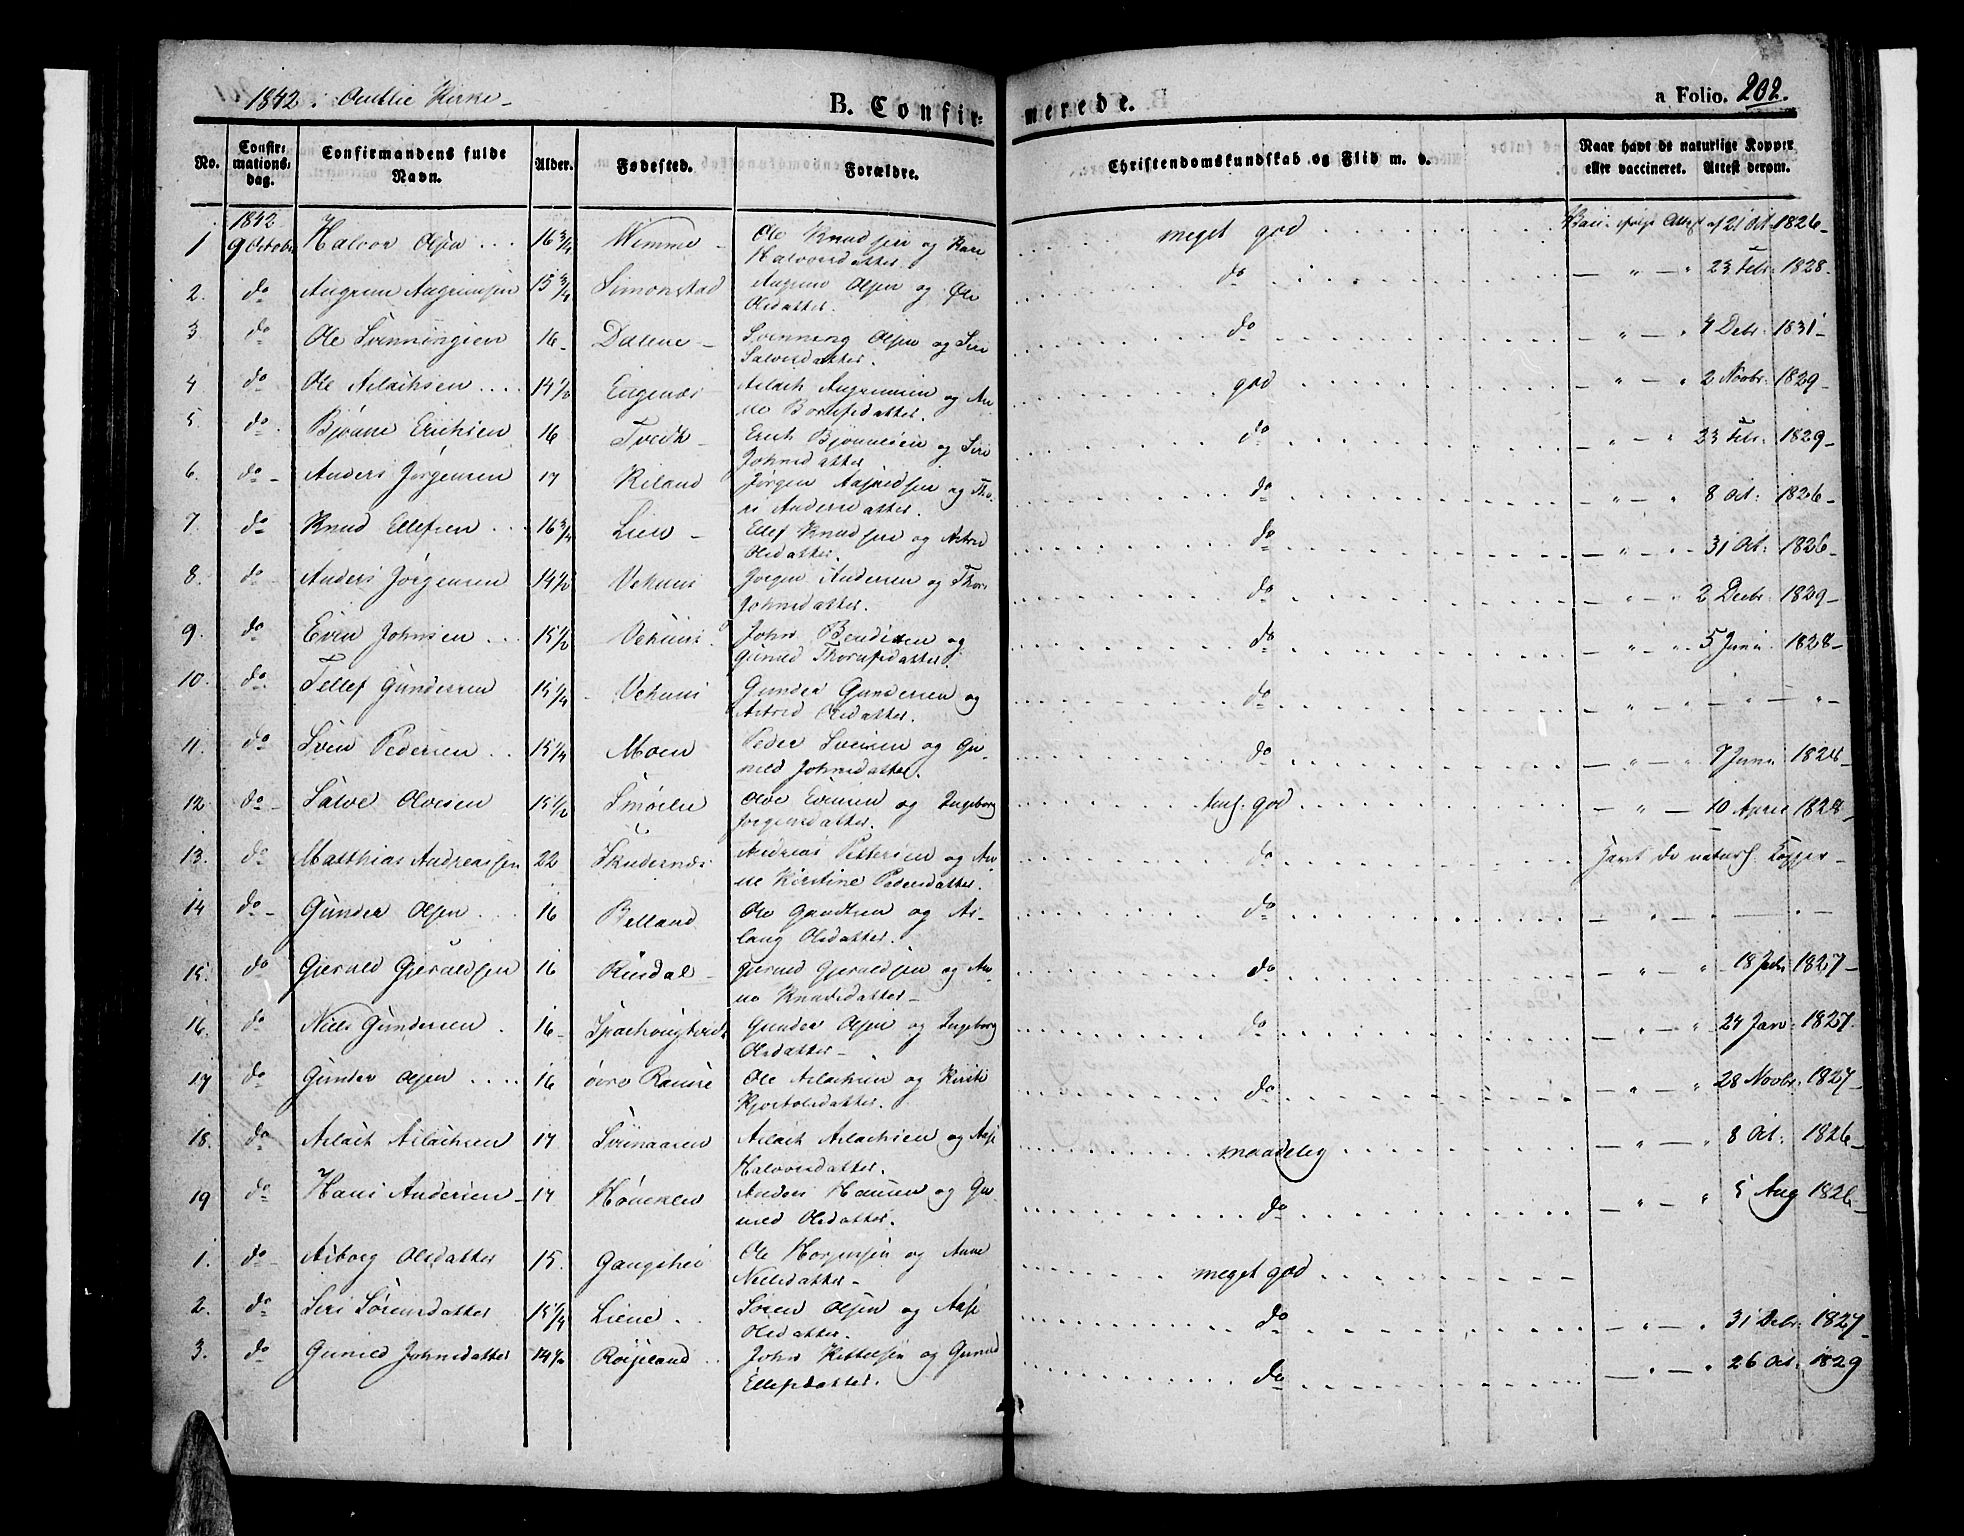 1842 i Aamlie Kirke
B. Confirmerede.
a Folio. 202.
No. Confirmationsdag. Confirmandens fulde Navn. Alder. Fødested. Forældre. Christendomskundskab og Flid m. v. Naar havt de naturlige Kopper eller vaccineret. Attest derom.
1842
1 9 October Halvor Olsen 16 3/4 Wimme Ole Knudsen og Kari Halvorsdatter. meget god Vacc. Attest af 21 Oct. 1826
2. do Augrim Augrimsen 15 3/4 Simonstad Augrim Olsen og Olsdatter. do — " — " 23 Febr. 1828
3. do Ole Svenningsen 16 Dalene Svenning Olsen og Siri Salvesdatter. do " — " 4 Debr. 1831
4 do Ole Aslachsen 14 1/2 Engenæs Aslach Augrimsen og Anne do god — " — " 2 Novbr. 1829
5. do Bjønne Erichsen 16 Tvedt Erich Bjønnesen og Siri Johnsdatter do " — " 23 Febr. 1829
6. do Anders Jørgensen 17 Riland Jørgen og Thori Andersdatter. do — " — " 8 Oct: 1826
7. do Knud Ellefsen 16 3/4 Lien Ellef Knudsen og Astrid Olsdatter. do — " — " 31 Oct: 1826
8. do Anders Jørgensen 14 1/2 Vehuus Jørgen Andersen og Johnsdatter. do " — " 2 Decbr. 1829
9. do Even Johnsen 15 1/2 Vehuus John Bendixen og Gunild do " " 5 Juni 1828
10. do Tellef Gundersen 15 1/4 Vehuus Gunder Gundersen og Astrid Olsdatter. do — " — " — " — "
11. do Sven Pedersen 15 1/4 Moen Peder Svensen og Gunild Johnsdatter. do — " — " 7 Juni 1828
12 do Salve Olvesen 15 1/2 Smøelie Olve Evensen og Ingeborg Jørgensdatter. god — " — 10 April 1828
13. do Matthias Andreassen 22 Skudernæs Andreas Pettersen og Anne Kirstine Pedersdatter. do Havt de naturl. Kopper
14 do Gunder Olsen 16 Belland Ole og Aslaug Olsdatter. do — " — " — " —
15. do Gjerald Gjeraldsen 16 Risdal Gjeruld Gjeraldsen og Anne Knudsdatter do — " — " 18 1827
16. do Niels Gundersen 16 Gunder Olsen og Ingeborg Olsdatter do " — " 24 Janr. 1827.
17 do Gunder Olsen 16 øvre Ramse Ole Aslachsen og Kirsti Kjøstolsdatter. do — " — " 28 Novbr. 1827
18. do Aslach Aslachsen 17 Svenaasen Aslach Aslachsen og Aase Halvorsdatter. maadelig — " — " 8 Oct: 1826
19 do Hans Andersen 17 Anders Hansen og Gunild Olsdatter. do " — " 5 Aug 1826
1. do Asborg Olsdatter 15. Gangshei Ole og Anne Nielsdatter meget god
2. do Siri Sørensdatter 15 1/4 Liene Søren Olsen og Aase Olsdatter. do — " — " 31 Debr. 1827
3. do Gunild Johnsdatter 14 1/2 Røisland John Kittelsen og Gunild Ellefsdatter. do — " — " 26 Oct. 1829